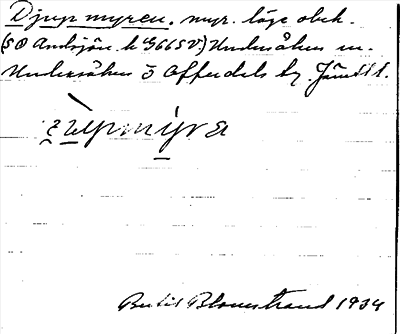 Djupmyren. myr. läge obek.
(SO Andsjön. k 4G66SV.) Undersåkers sn.
Undersåkers Ö Offerdals tg. Jämtl l.
zùpmy̌ra
Bertil Blomstrand 1934